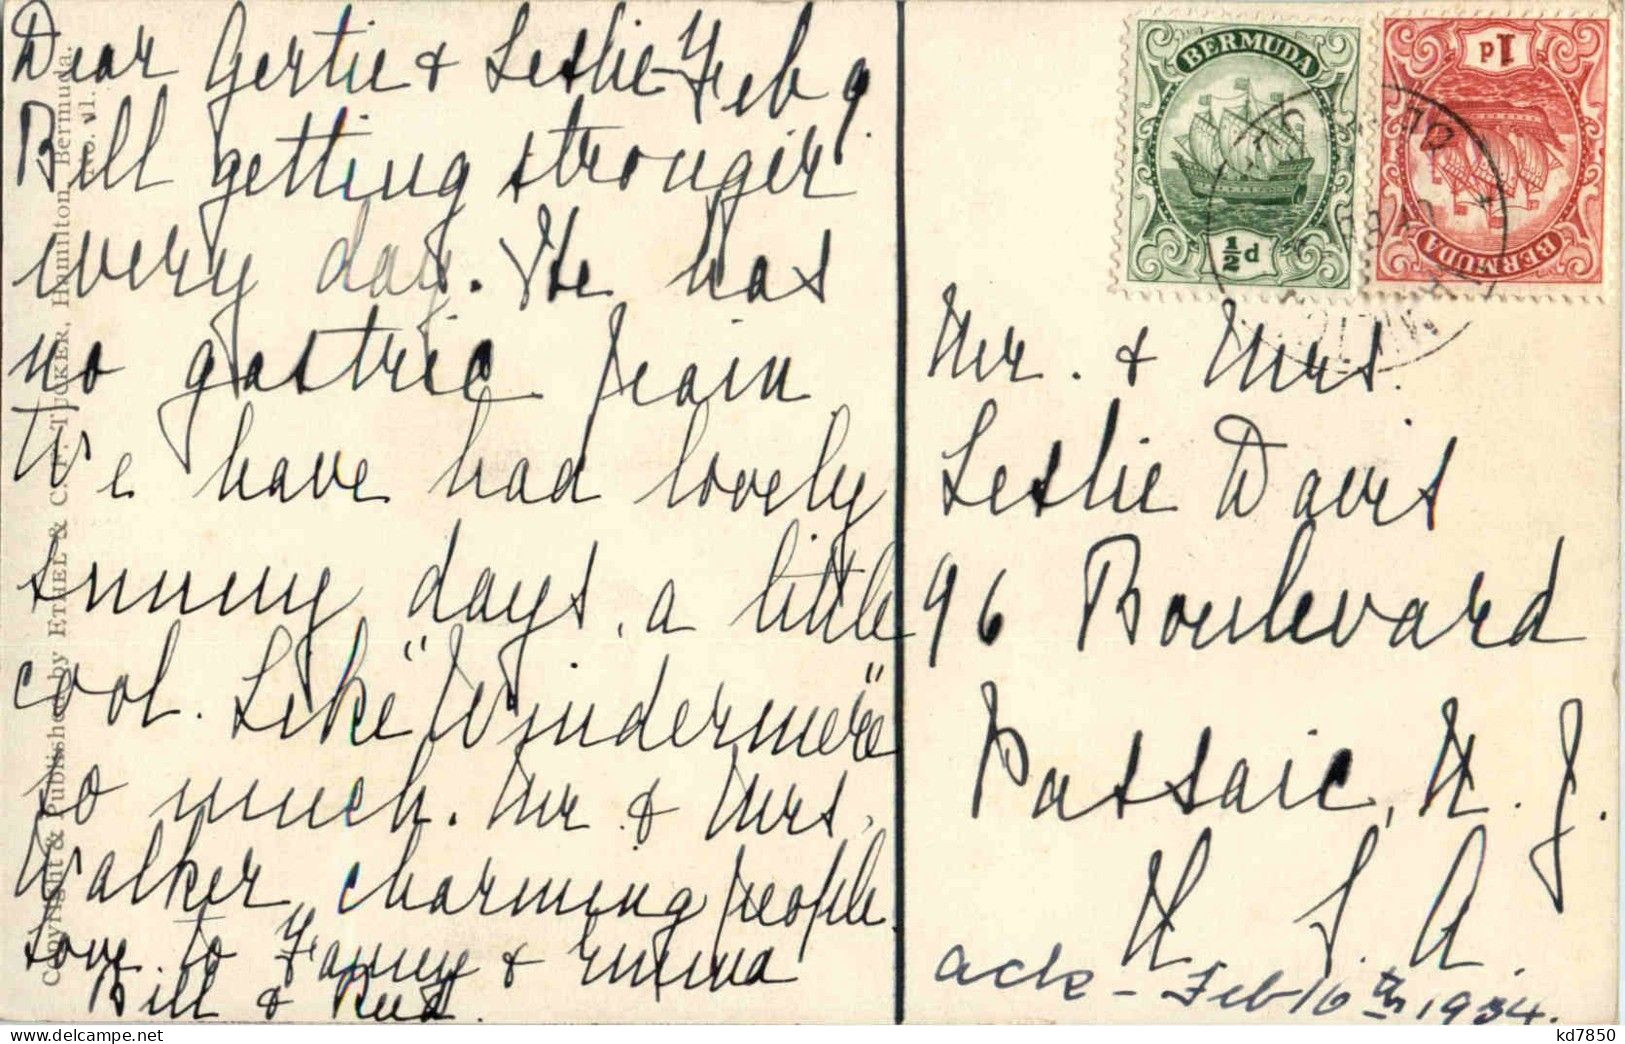 Dear Gertie & Leslie - Feb 9
Bill getting stronger
every day. He has
no gastric pain
We have had lovely
sunny days, a little
cool. Like "Windermere"
so much. Mr. & Mrs.
Walker, charming people.
Love to Fanny & Emma
Bill &
Copyright & Published by ETHEL & C. F. TUCKER, Hamilton, Bermuda.
No. 71.
BERMUDA
½d
BERMUDA
1d
Mr. & Mrs.
Leslie Davis
96 Boulevard
Passaic, N. J.
U. S. A.
ack - Feb 16th 1934.
kd7850